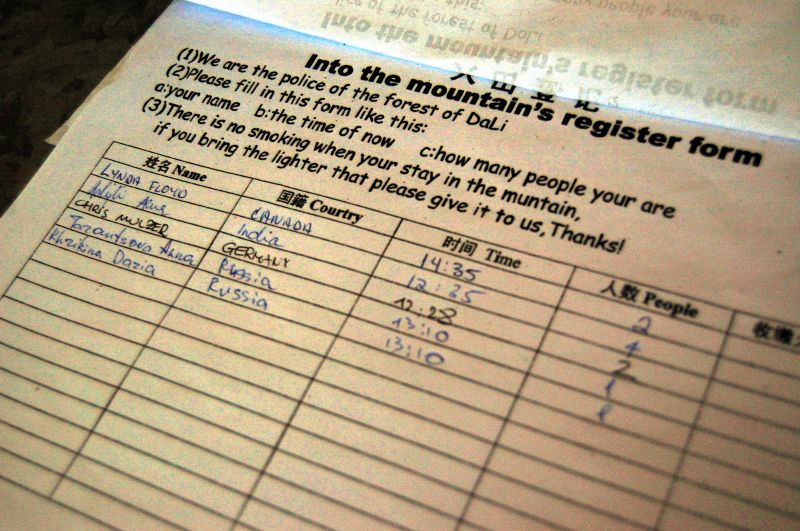 入山登记
Into the mountain's register form
(1)We are the police of the forest of DaLi
(2)Please fill in this form like this:
a:your name b:the time of now c:how many people your are
(3)There is no smoking when your stay in the muntain,
if you bring the lighter that please give it to us,Thanks!
姓名 Name 国籍 Courtry 时间 Time 人数 People 收缴
LYNDA FLOYD CANADA 14:35 2
India 12:35 4
CHRIS MULDER GERMANY 12:28 2
Anna Russia 13:10 1
Daria Russia 13:10 1